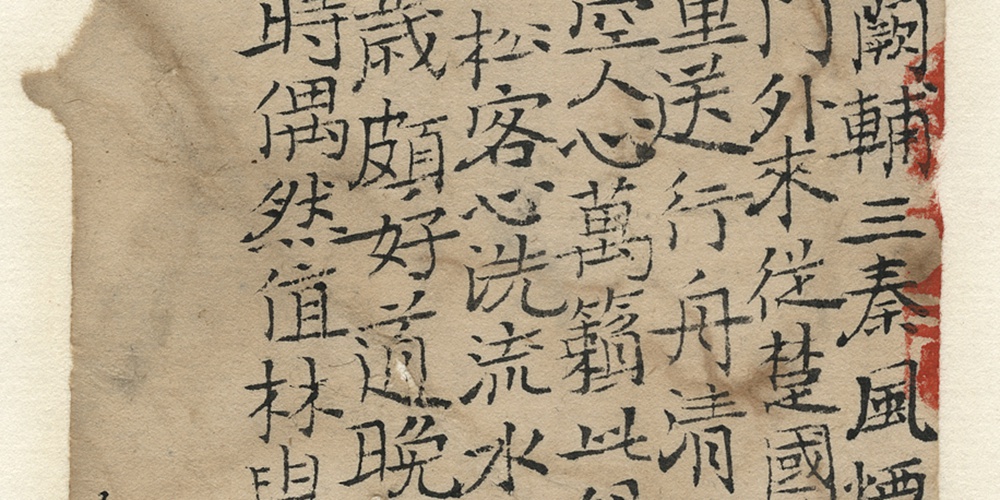 闕輔三秦風煙
門外來從楚國
重送行舟清
空人心萬籟此
松客心洗流水
歲頗好道晚
時偶然值林